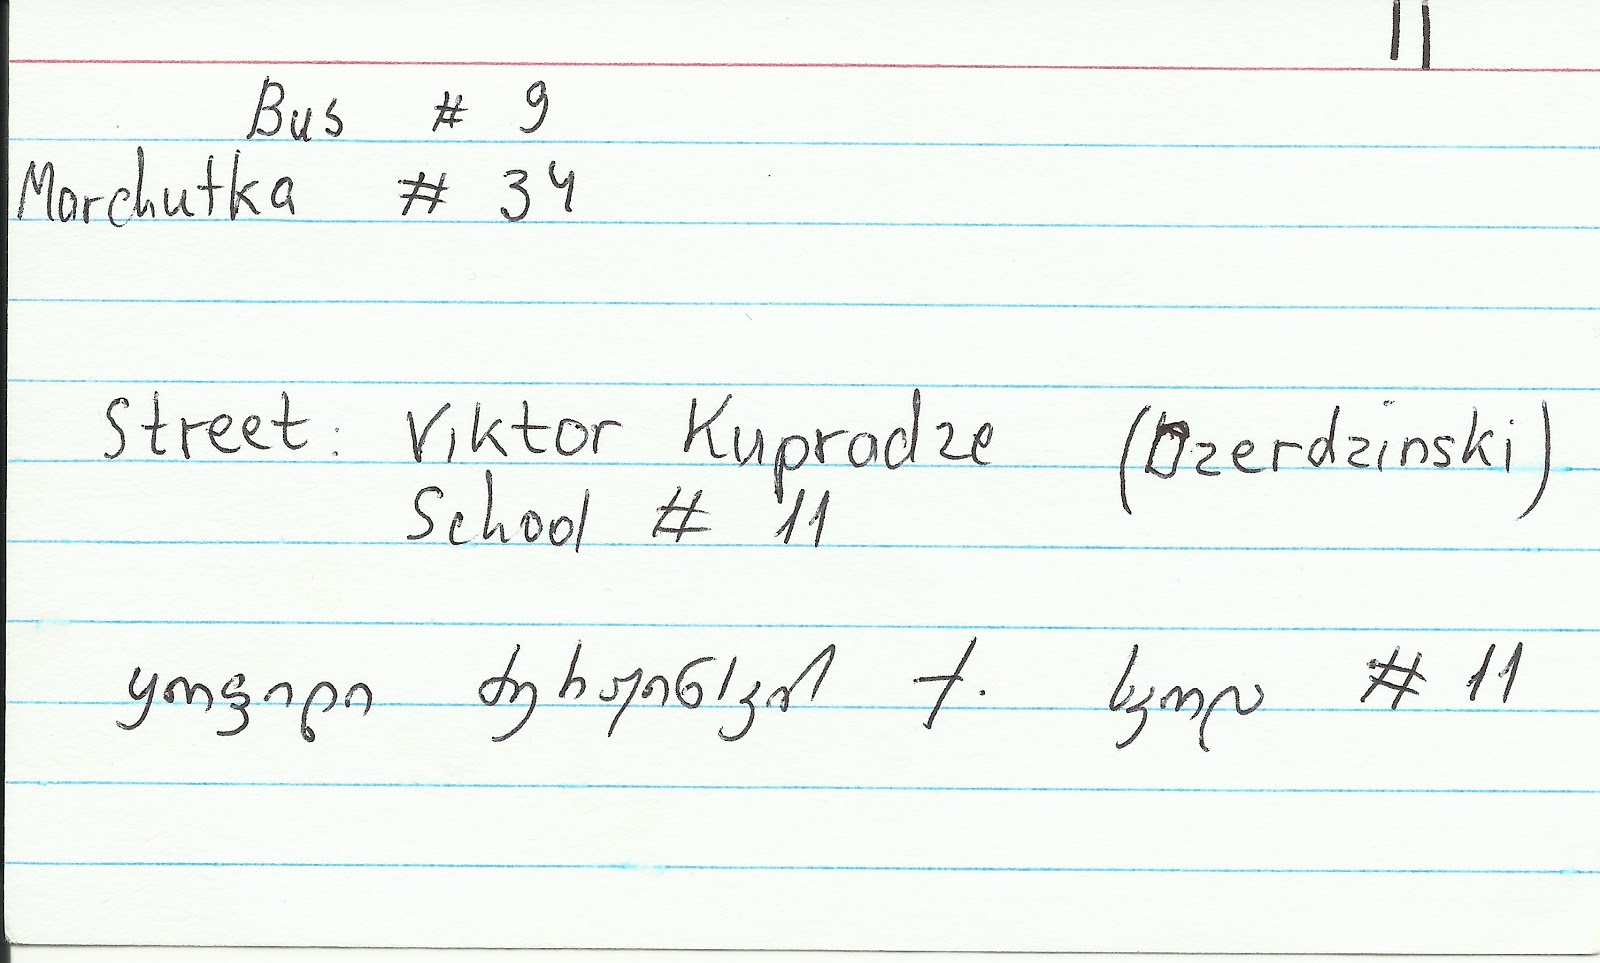 11
Bus # 9
Marchutka # 34
Street: Viktor Kupradze (Dzerdzinski)
School # 11
ყოფილი ქ. სკოლა # 11